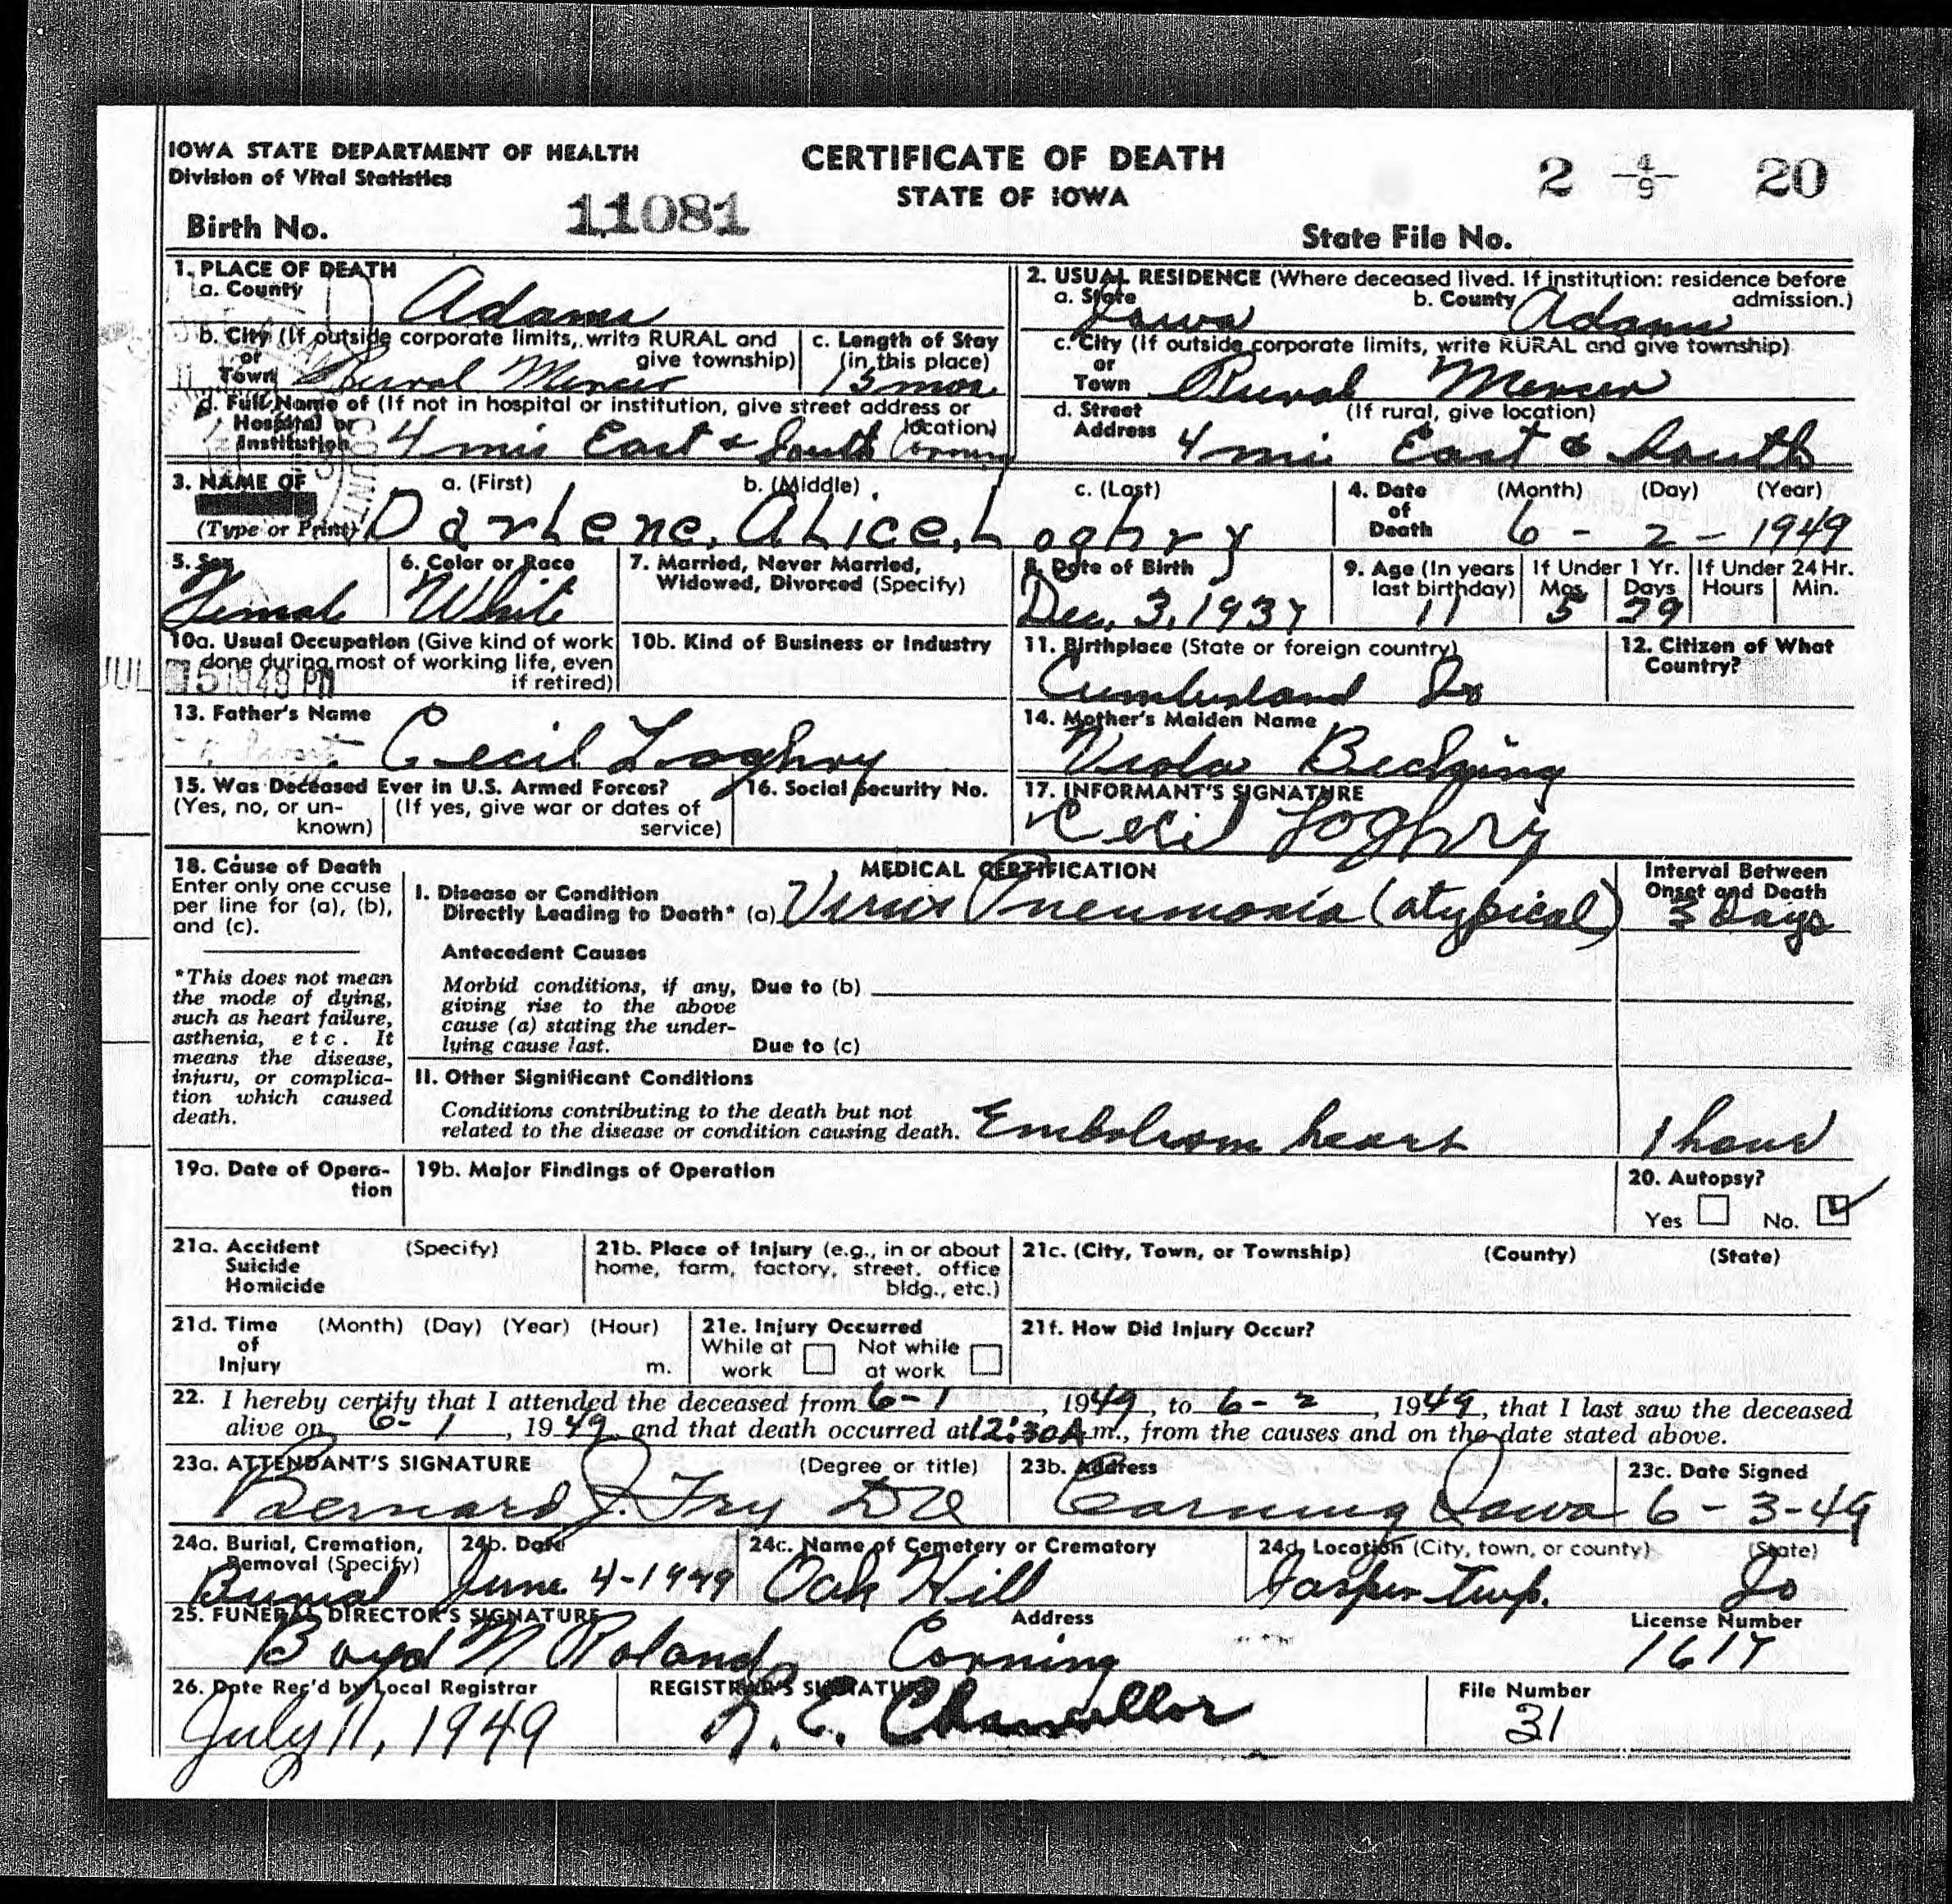 IOWA STATE DEPARTMENT OF HEALTH
Division of Vital Statistics
CERTIFICATE OF DEATH
STATE OF IOWA
2 4/9 20
Birth No. 11081
State File No.
1. PLACE OF DEATH
a. County Adams
b. City (If outside corporate limits, write RURAL and give township)
or Town Rural Mercer
c. Length of Stay (in this place)
mos
d. Full Name of (If not in hospital or institution, give street address or location)
Hospital or Institution 4 mi East & South Corning
2. USUAL RESIDENCE (Where deceased lived. If institution: residence before admission.)
a. State Iowa b. County Adams
c. City (If outside corporate limits, write RURAL and give township)
or Town Rural Mercer
d. Street Address (If rural, give location)
4 mi East & South
3. NAME OF
(Type or Print)
a. (First) b. (Middle) c. (Last)
Darlene, Alice, Loghry
4. Date of Death (Month) (Day) (Year)
6 - 2 - 1949
5. Sex
Female
6. Color or Race
White
7. Married, Never Married, Widowed, Divorced (Specify)
8. Date of Birth
Dec. 3, 1937
9. Age (In years last birthday)
11
If Under 1 Yr.
Mos. 5 Days 29
If Under 24 Hr.
Hours Min.
10a. Usual Occupation (Give kind of work done during most of working life, even if retired)
JUL 15 1949 PM
10b. Kind of Business or Industry
11. Birthplace (State or foreign country)
Cumberland Ia
12. Citizen of What Country?
13. Father's Name
Cecil Loghry
14. Mother's Maiden Name
Viola
15. Was Deceased Ever in U.S. Armed Forces?
(Yes, no, or unknown) (If yes, give war or dates of service)
16. Social Security No.
17. INFORMANT'S SIGNATURE
Cecil Loghry
18. Cause of Death
Enter only one cause per line for (a), (b), and (c).
*This does not mean the mode of dying, such as heart failure, asthenia, etc. It means the disease, injury, or complication which caused death.
MEDICAL CERTIFICATION
I. Disease or Condition
Directly Leading to Death* (a) Virus Pneumonia (atypical)
Interval Between Onset and Death
3 days
Antecedent Causes
Morbid conditions, if any, giving rise to the above cause (a) stating the underlying cause last.
Due to (b)
Due to (c)
II. Other Significant Conditions
Conditions contributing to the death but not related to the disease or condition causing death. Embolism heart
1 hour
19a. Date of Operation
19b. Major Findings of Operation
20. Autopsy?
Yes No.
21a. Accident Suicide Homicide (Specify)
21b. Place of Injury (e.g., in or about home, farm, factory, street, office bldg., etc.)
21c. (City, Town, or Township) (County) (State)
21d. Time of Injury (Month) (Day) (Year) (Hour) m.
21e. Injury Occurred
While at work Not while at work
21f. How Did Injury Occur?
22. I hereby certify that I attended the deceased from 6-1, 1949, to 6-2, 1949, that I last saw the deceased
alive on 6-1, 1949, and that death occurred at 12:30A m., from the causes and on the date stated above.
23a. ATTENDANT'S SIGNATURE (Degree or title)
Bernard J. Fry DO
23b. Address
Corning Iowa
23c. Date Signed
6-3-49
24a. Burial, Cremation, Removal (Specify)
Burial
24b. Date
June 4-1949
24c. Name of Cemetery or Crematory
Oak Hill
24d. Location (City, town, or county) (State)
Jasper Twp. Io
25. FUNERAL DIRECTOR'S SIGNATURE Address License Number
Boyd N Roland Corning 1617
26. Date Rec'd by Local Registrar
July 11, 1949
REGISTRAR'S SIGNATURE
E. Chancellor
File Number
31